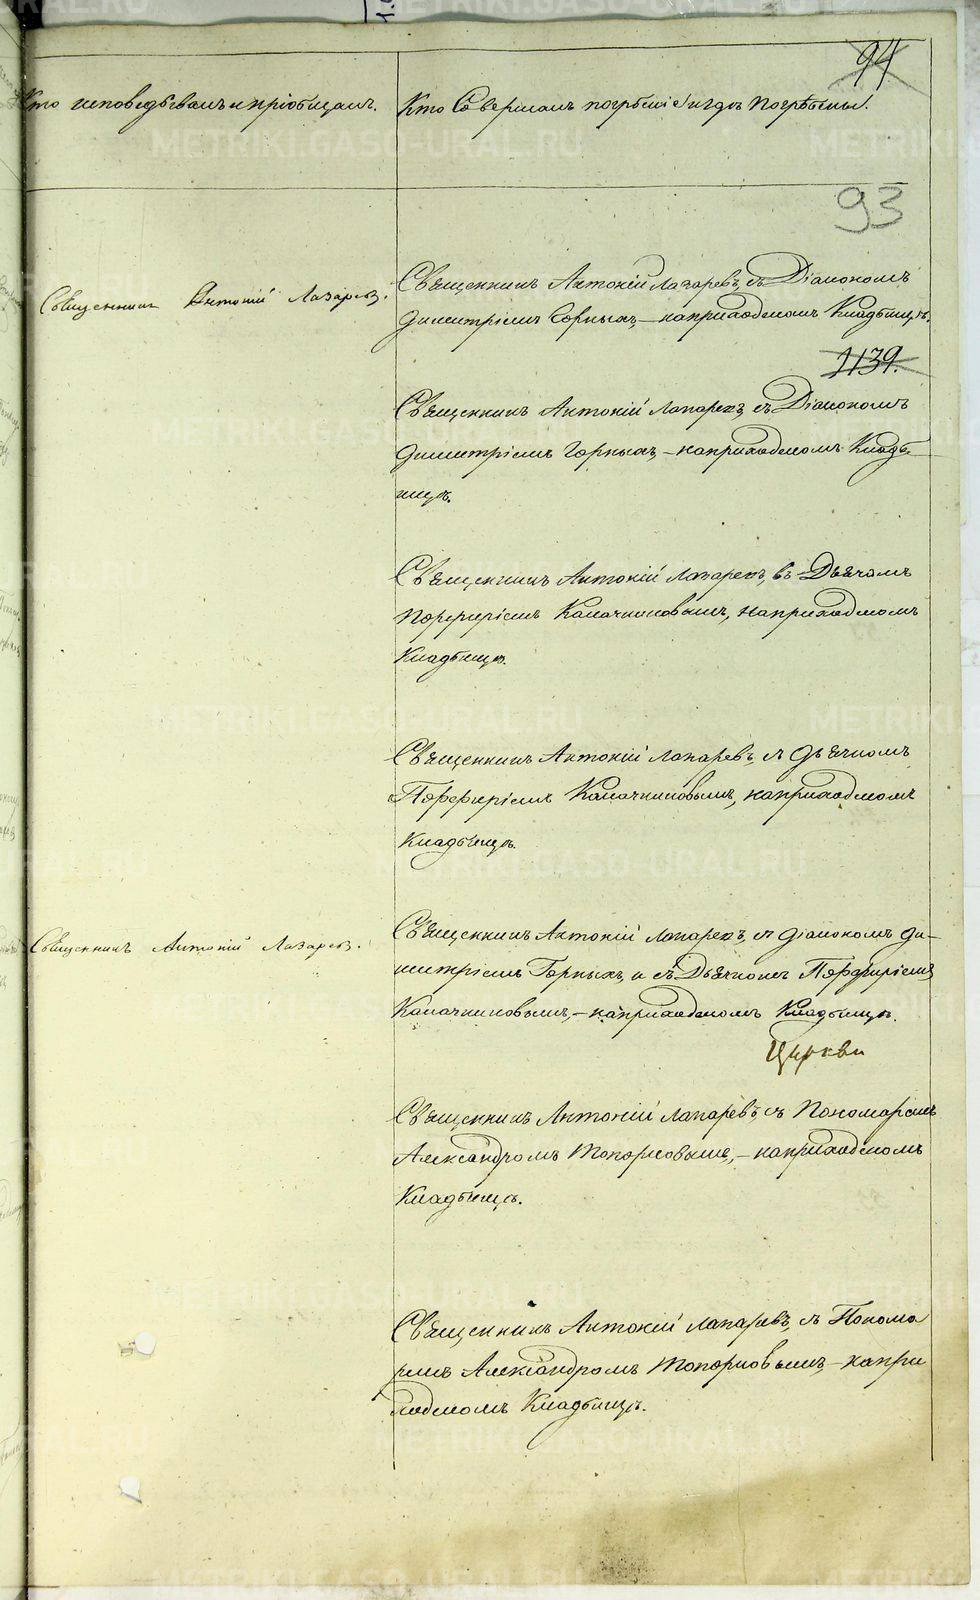 94
Кто исповѣдывалъ и пріобщалъ.
Кто Совершалъ погребеніе и гдѣ Погребены.
93
Священникъ Антоній Лазаревъ.
Священникъ Антоній Лазаревъ, съ Діакономъ
Димитріемъ Горныхъ, – на приходскомъ Кладбищѣ.
1139.
Священникъ Антоній Лазаревъ, съ Діакономъ
Димитріемъ Горныхъ, – на приходскомъ Кладби-
щѣ.
Священникъ Антоній Лазаревъ, съ Дьячкомъ
Порфиріемъ Калачниковымъ, на приходскомъ
Кладбищѣ.
Священникъ Антоній Лазаревъ, съ дьячкомъ
Порфиріемъ Калачниковымъ, на приходскомъ
Кладбищѣ.
Священникъ Антоній Лазаревъ.
Священникъ Антоній Лазаревъ, съ діакономъ Ди-
митріемъ Горныхъ, и съ Дьячкомъ Порфиріемъ
Калачниковымъ, – на приходскомъ Кладбищѣ.
Церкви
Священникъ Антоній Лазаревъ, съ Пономаремъ
Александромъ Топорковымъ, – на приходскомъ
Кладбищѣ.
Священникъ Антоній Лазаревъ, съ Понома
ремъ Александромъ Топорковымъ, – на при
ходскомъ Кладбищѣ.
METRIKI.GASO-URAL.RU